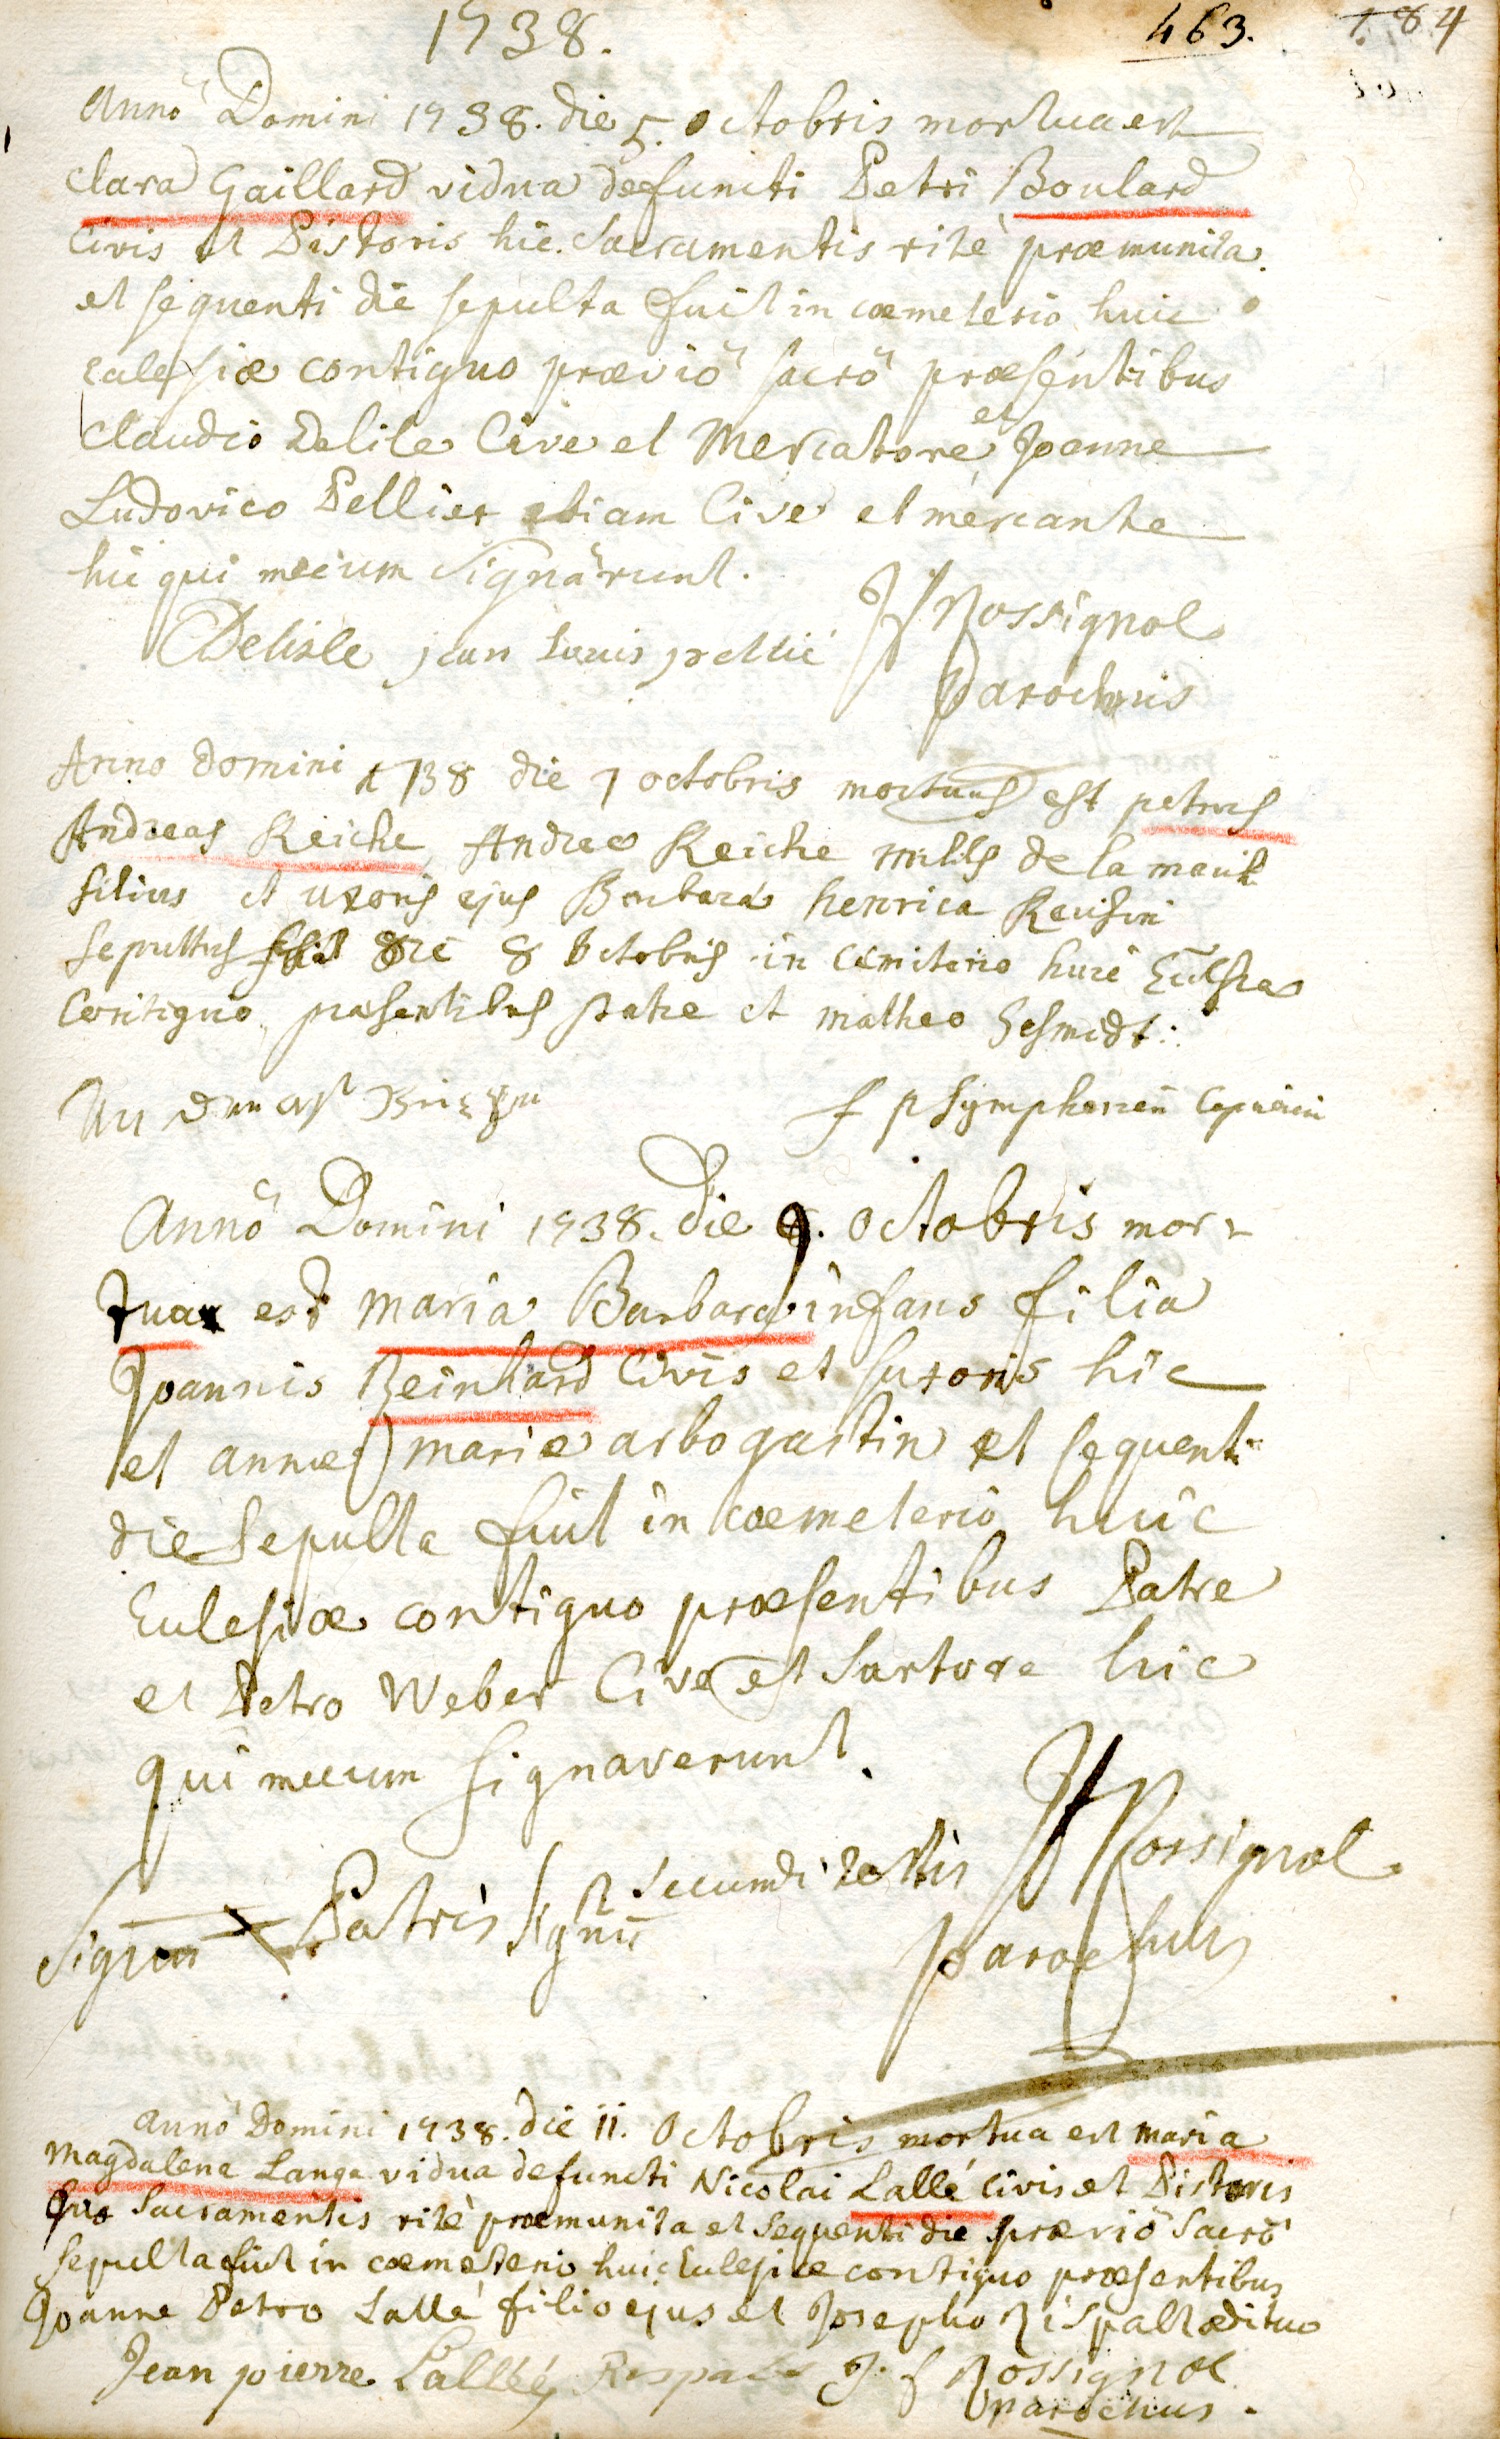 1738.
463. 184
Annō Domini 1738. die 5. octobris mortua est
Clara Gaillard vidua defuncti Petri Boulard
Civis et Pistoris hic. Sacramentis ritè præmunita.
et sequenti die sepulta fuit in cœmeterio huic
Eclesiæ contiguo præviō sacrō præsentibus
Claudio Delile Cive et Mercatore et Joanne
Ludovico Pellier etiam Cive et mercante
hic qui mecum Signârunt.
Delisle jean Louis pellié JfRossignol
Parochus
Anno Domini 1738 die 7 octobris mortuus est petrus
Andreas Reiche, Andreæ Reiche de la
filius et uxoris ejus Barbara henrica
sepultus fuit die 8 octobris in cœmiterio huic Eccl͞siæ
Contiguo, præsentibus patre et matheo Schmidt:
f p Symphorien Capucin
Annō Domini 1738. die 9. octobris mor-
tua est maria Barbara infans filia
Joannis Beinhard Civis et sutoris hic
et annæ mariæ arbogastin et sequenti
die sepulta fuit in cœmeterio huic
Eclesiæ contiguo præsentibus Patre
et Petro Weber Cive et Sartore hic
qui mecum signaverunt.
Signum Patris signū secundi testis JfRossignol
parochus
Annō Domini 1738. die 11. Octobris mortua est maria
Magdalena Lange vidua defuncti Nicolai Lallé Civis et Pistoris
Sacramentis ritè præmunita et sequenti die præviō Sacrō
sepulta fuit in cœmeterio huic Eclesiæ contiguo præsentibus
Joanne Petro Lallé filio ejus et Josepho Rispalt ædituo
Jean pierre Lallé, J. f Rossignol
parochus.